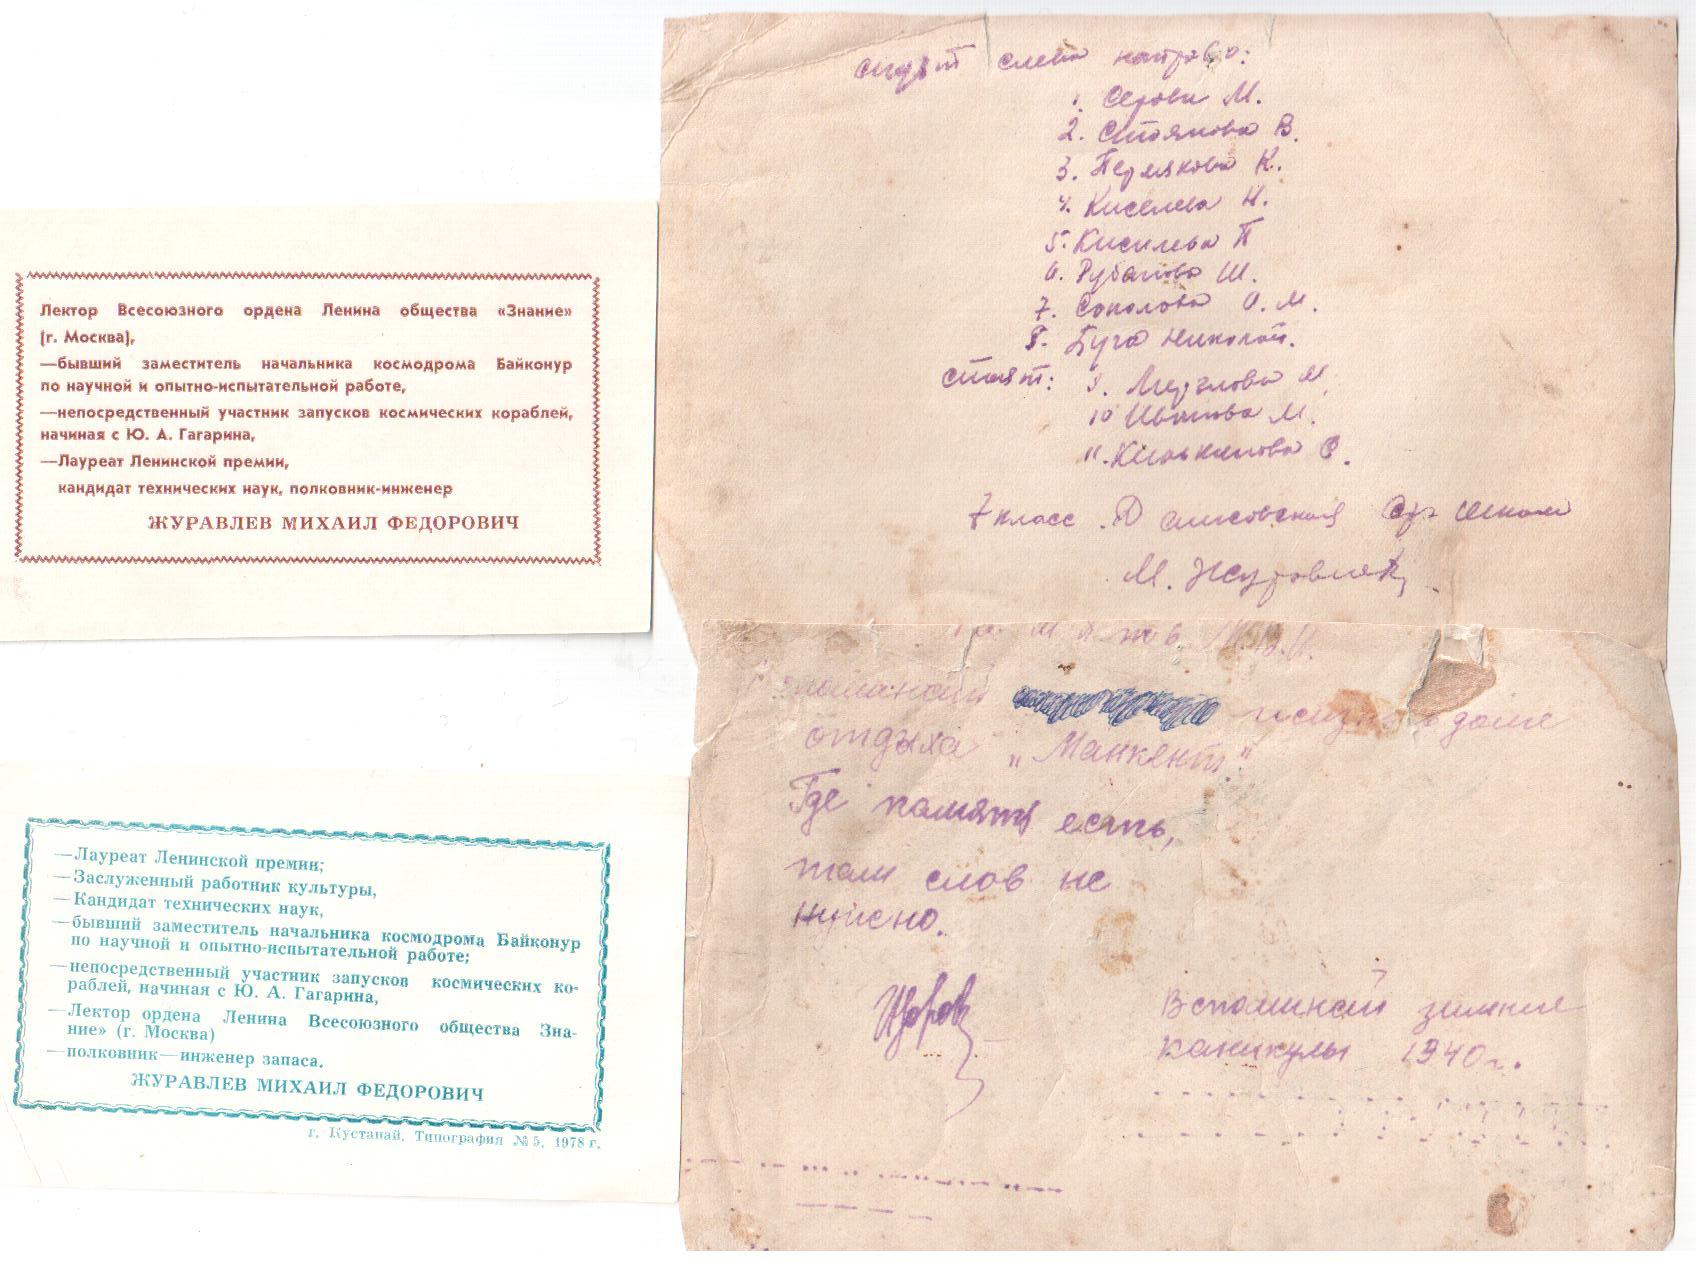 Лектор Всесоюзного ордена Ленина общества «Знание»
(г. Москва),
—бывший заместитель начальника космодрома Байконур
по научной и опытно-испытательной работе,
—непосредственный участник запусков космических кораблей,
начиная с Ю. А. Гагарина,
—Лауреат Ленинской премии,
кандидат технических наук, полковник-инженер
ЖУРАВЛЕВ МИХАИЛ ФЕДОРОВИЧ
—Лауреат Ленинской премии;
—Заслуженный работник культуры,
—Кандидат технических наук,
—бывший заместитель начальника космодрома Байконур
по научной и опытно-испытательной работе;
—непосредственный участник запусков космических ко-
раблей, начиная с Ю. А. Гагарина,
—Лектор ордена Ленина Всесоюзного общества Зна-
ние» (г. Москва)
—полковник—инженер запаса.
ЖУРАВЛЕВ МИХАИЛ ФЕДОРОВИЧ
г. Кустанай, Типография № 5, 1978 г.
сидят слева направо:
1. М.
2. Стоянова В.
3. Пермякова К.
4. Киселева Н.
5. Кисилева П
6. Ш.
7. Соколова О. М.
8. Буга Николай.
стоят: 9. М.
10 М.
11. С.
7 класс. школа
М. Журавлев
отдыха „Манкент"
Где память есть,
там слов не
нужно.
Вспоминай зимние
каникулы 1940 г.